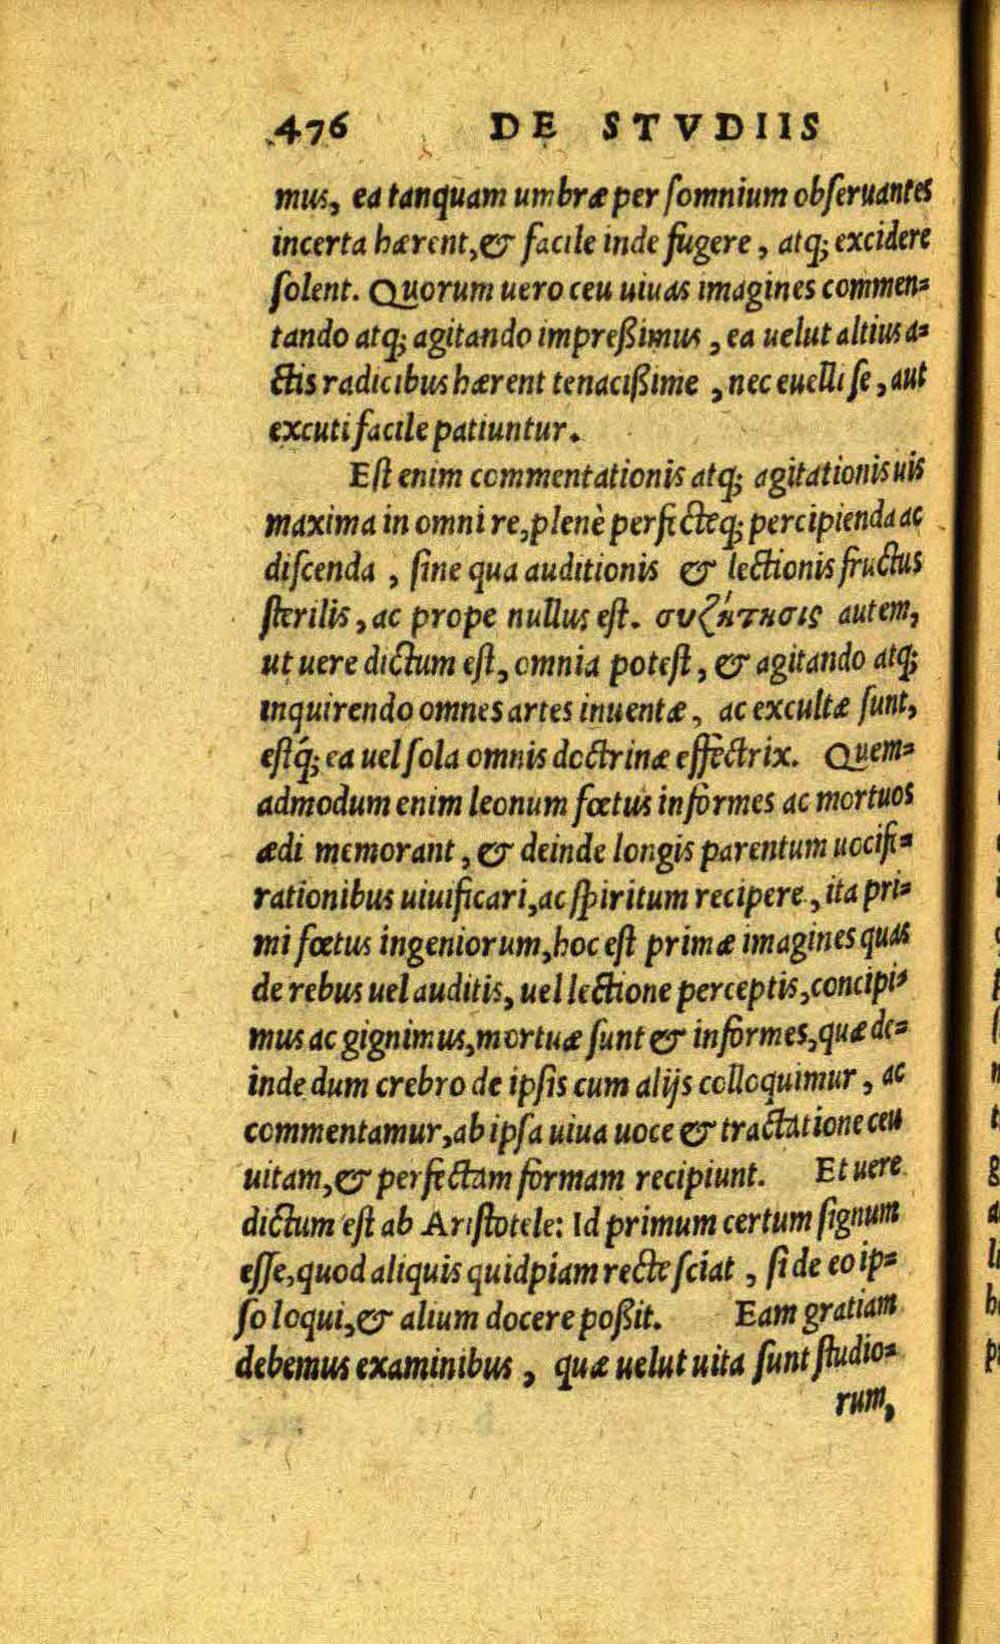 476 DE STVDIIS
mus, ea tanquam umbræ per ſomnium obſeruantes
incerta hærent, & facile inde fugere, atq; excidere
ſolent. Quorum uero ceu uiuas imagines commen⸗
tando atq; agitando impreßimus, ea uelut altius a⸗
ctis radicibus hærent tenacißime, nec euelli ſe, aut
excuti facile patiuntur.
Eſt enim commentationis atq; agitationis uis
maxima in omni re, plenè perfecteq; percipienda ac
diſcenda, ſine qua auditionis & lectionis fructus
ſterilis, ac prope nullus eſt. συζήτησις autem,
ut uere dictum eſt, omnia poteſt, & agitando atq;
inquirendo omnes artes inuentæ, ac excultæ ſunt,
eſtq́; ea uel ſola omnis doctrinæ effectrix. Quem⸗
admodum enim leonum fœtus informes ac mortuos
ædi memorant, & deinde longis parentum uocife⸗
rationibus uiuificari, ac ſpiritum recipere, ita pri⸗
mi fœtus ingeniorum, hoc eſt primæ imagines quas
de rebus uel auditis, uel lectione perceptis, concipi⸗
mus ac gignimus, mortuæ ſunt & informes, quæ de⸗
inde dum crebro de ipſis cum alijs colloquimur, ac
commentamur, ab ipſa uiua uoce & tractatione ceu
uitam, & perfectam formam recipiunt. Et uere
dictum eſt ab Ariſtotele: Id primum certum ſignum
eſſe, quod aliquis quidpiam recte ſciat, ſi de eo ip⸗
ſo loqui, & alium docere poßit. Eam gratiam
debemus examinibus, quæ uelut uita ſunt ſtudio⸗
rum,